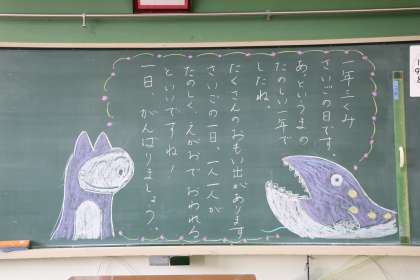 一年二くみ
さいごの日です
あっというまの
たのしい一年で
したね。
たくさんのおもい出があります
さいごの一日、一人一人が
たのしく、えがおでおわれる
といいですね！
一日、がんばりましょう。